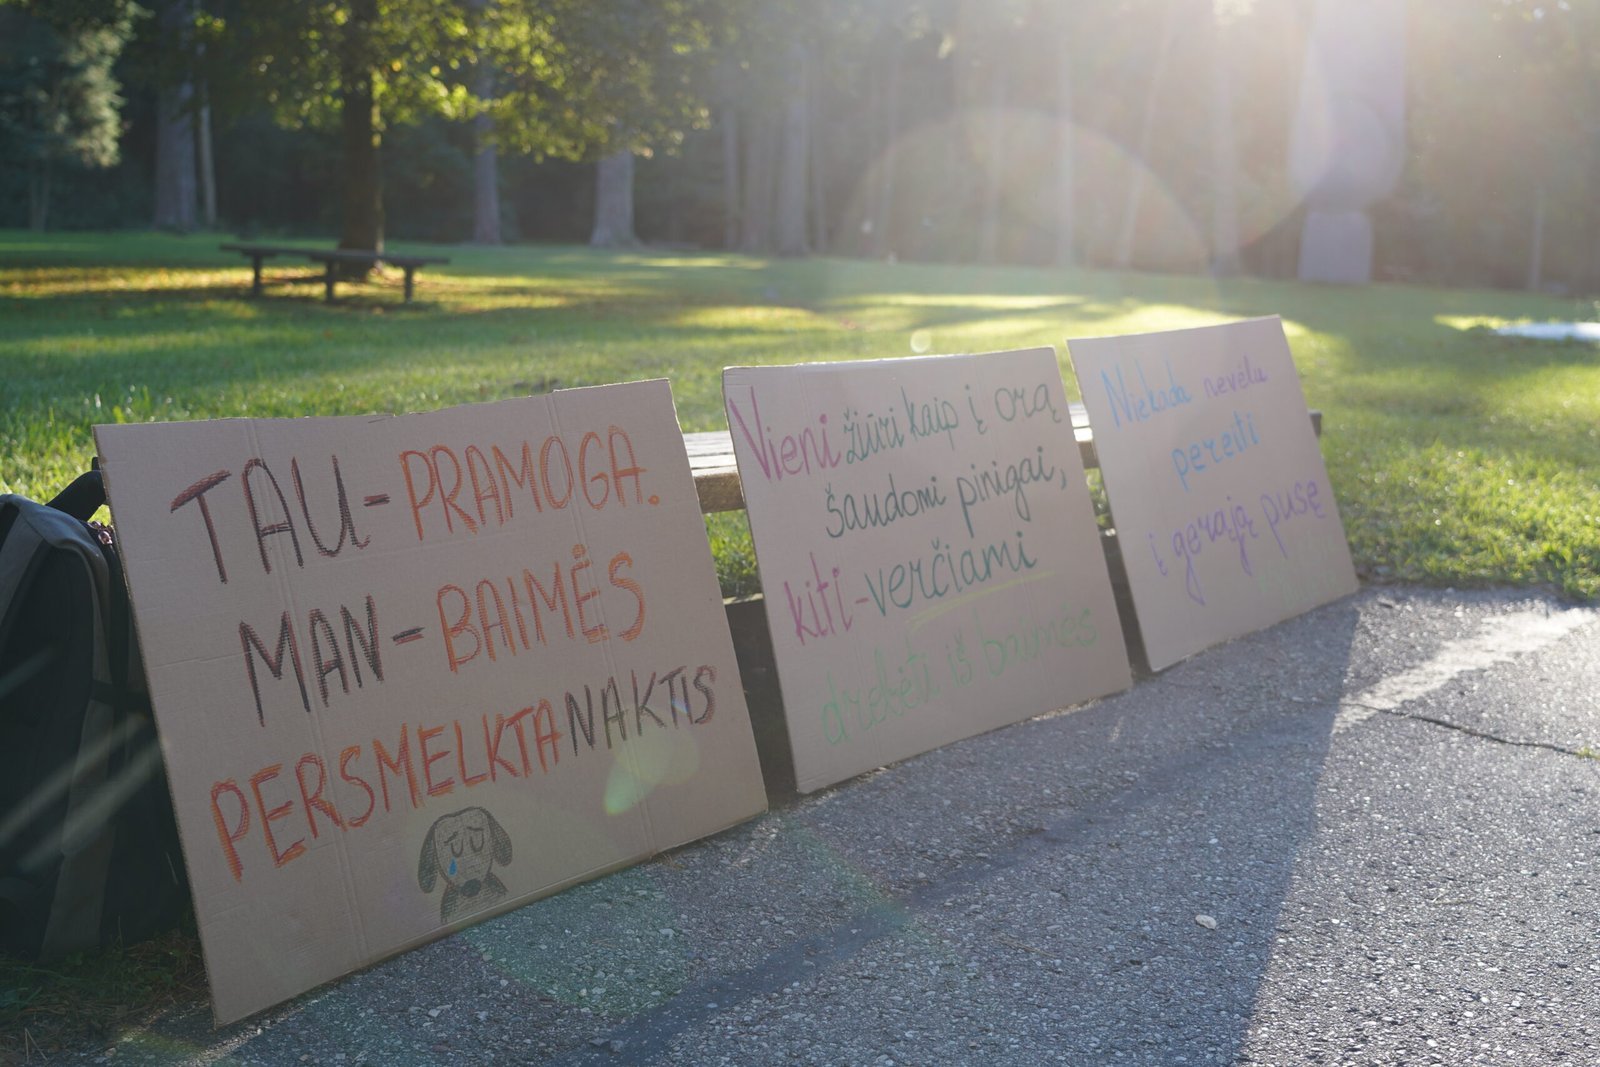 TAU-PRAMOGA.
MAN-BAIMĖS
PERSMELKTA NAKTIS
Vieni žiūri kaip į orą
šaudomi pinigai,
kiti-verčiami
drebėti iš baimės
Niekada nevėlu
pereiti
į gerąją pusę